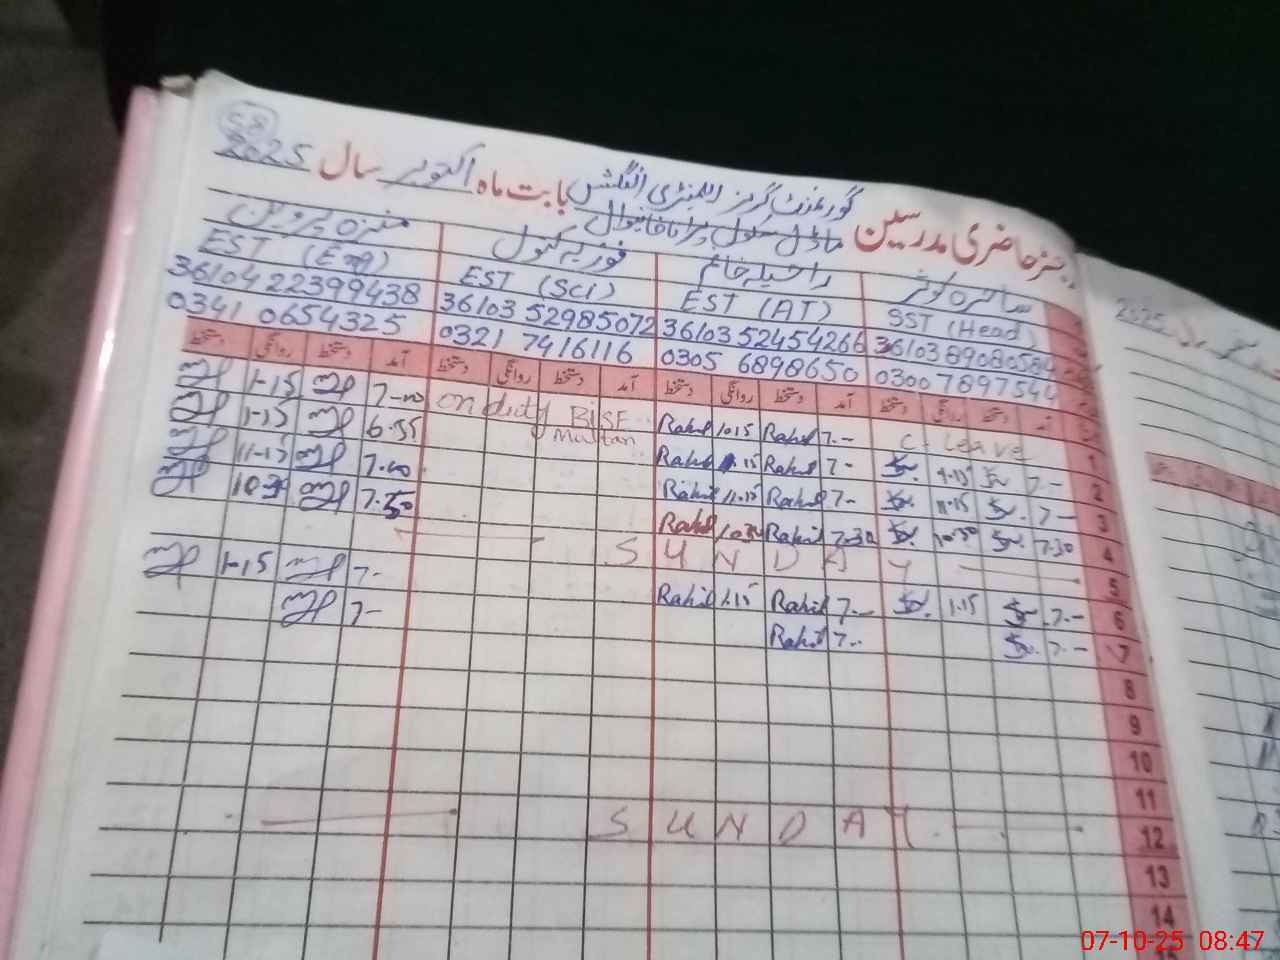 58
رجسٹر حاضری مدرسین گورنمنٹ گرلز ایلیمنٹری انگلش بابت ماہ اکتوبر سال 2025
ماڈل سکول
سائرہ کوثر راحیلہ خانم فوزیہ کنول
SST (Head) EST (AT) EST (Sci) EST (Eng)
3610389080584 3610352454266 3610352985072 3610422399438
0300 7897544 0305 6898650 0321 7416116 0341 0654325
آمد دستخط روانگی دستخط آمد دستخط روانگی دستخط آمد دستخط روانگی دستخط آمد دستخط روانگی دستخط
1 C leave 7.- Rahil 1.15 Rahil on duty BISE Multan 7-00 1-15
2 7.- 7.- Rahil Rahil 6.35 1-15
3 7.- 11.15 7.- Rahil 11.15 Rahil 7.00 11-15
4 7.30 10.30 7.30 Rahil 10.30 Rahil 7.30
5 SUNDAY
6 7.- 1.15 7.- Rahil 1.15 Rahil 7.- 1-15
7 7.- 7.- Rahil 7-
8
9
10
11
12 SUNDAY
13
14
15
2025
07-10-25 08:47